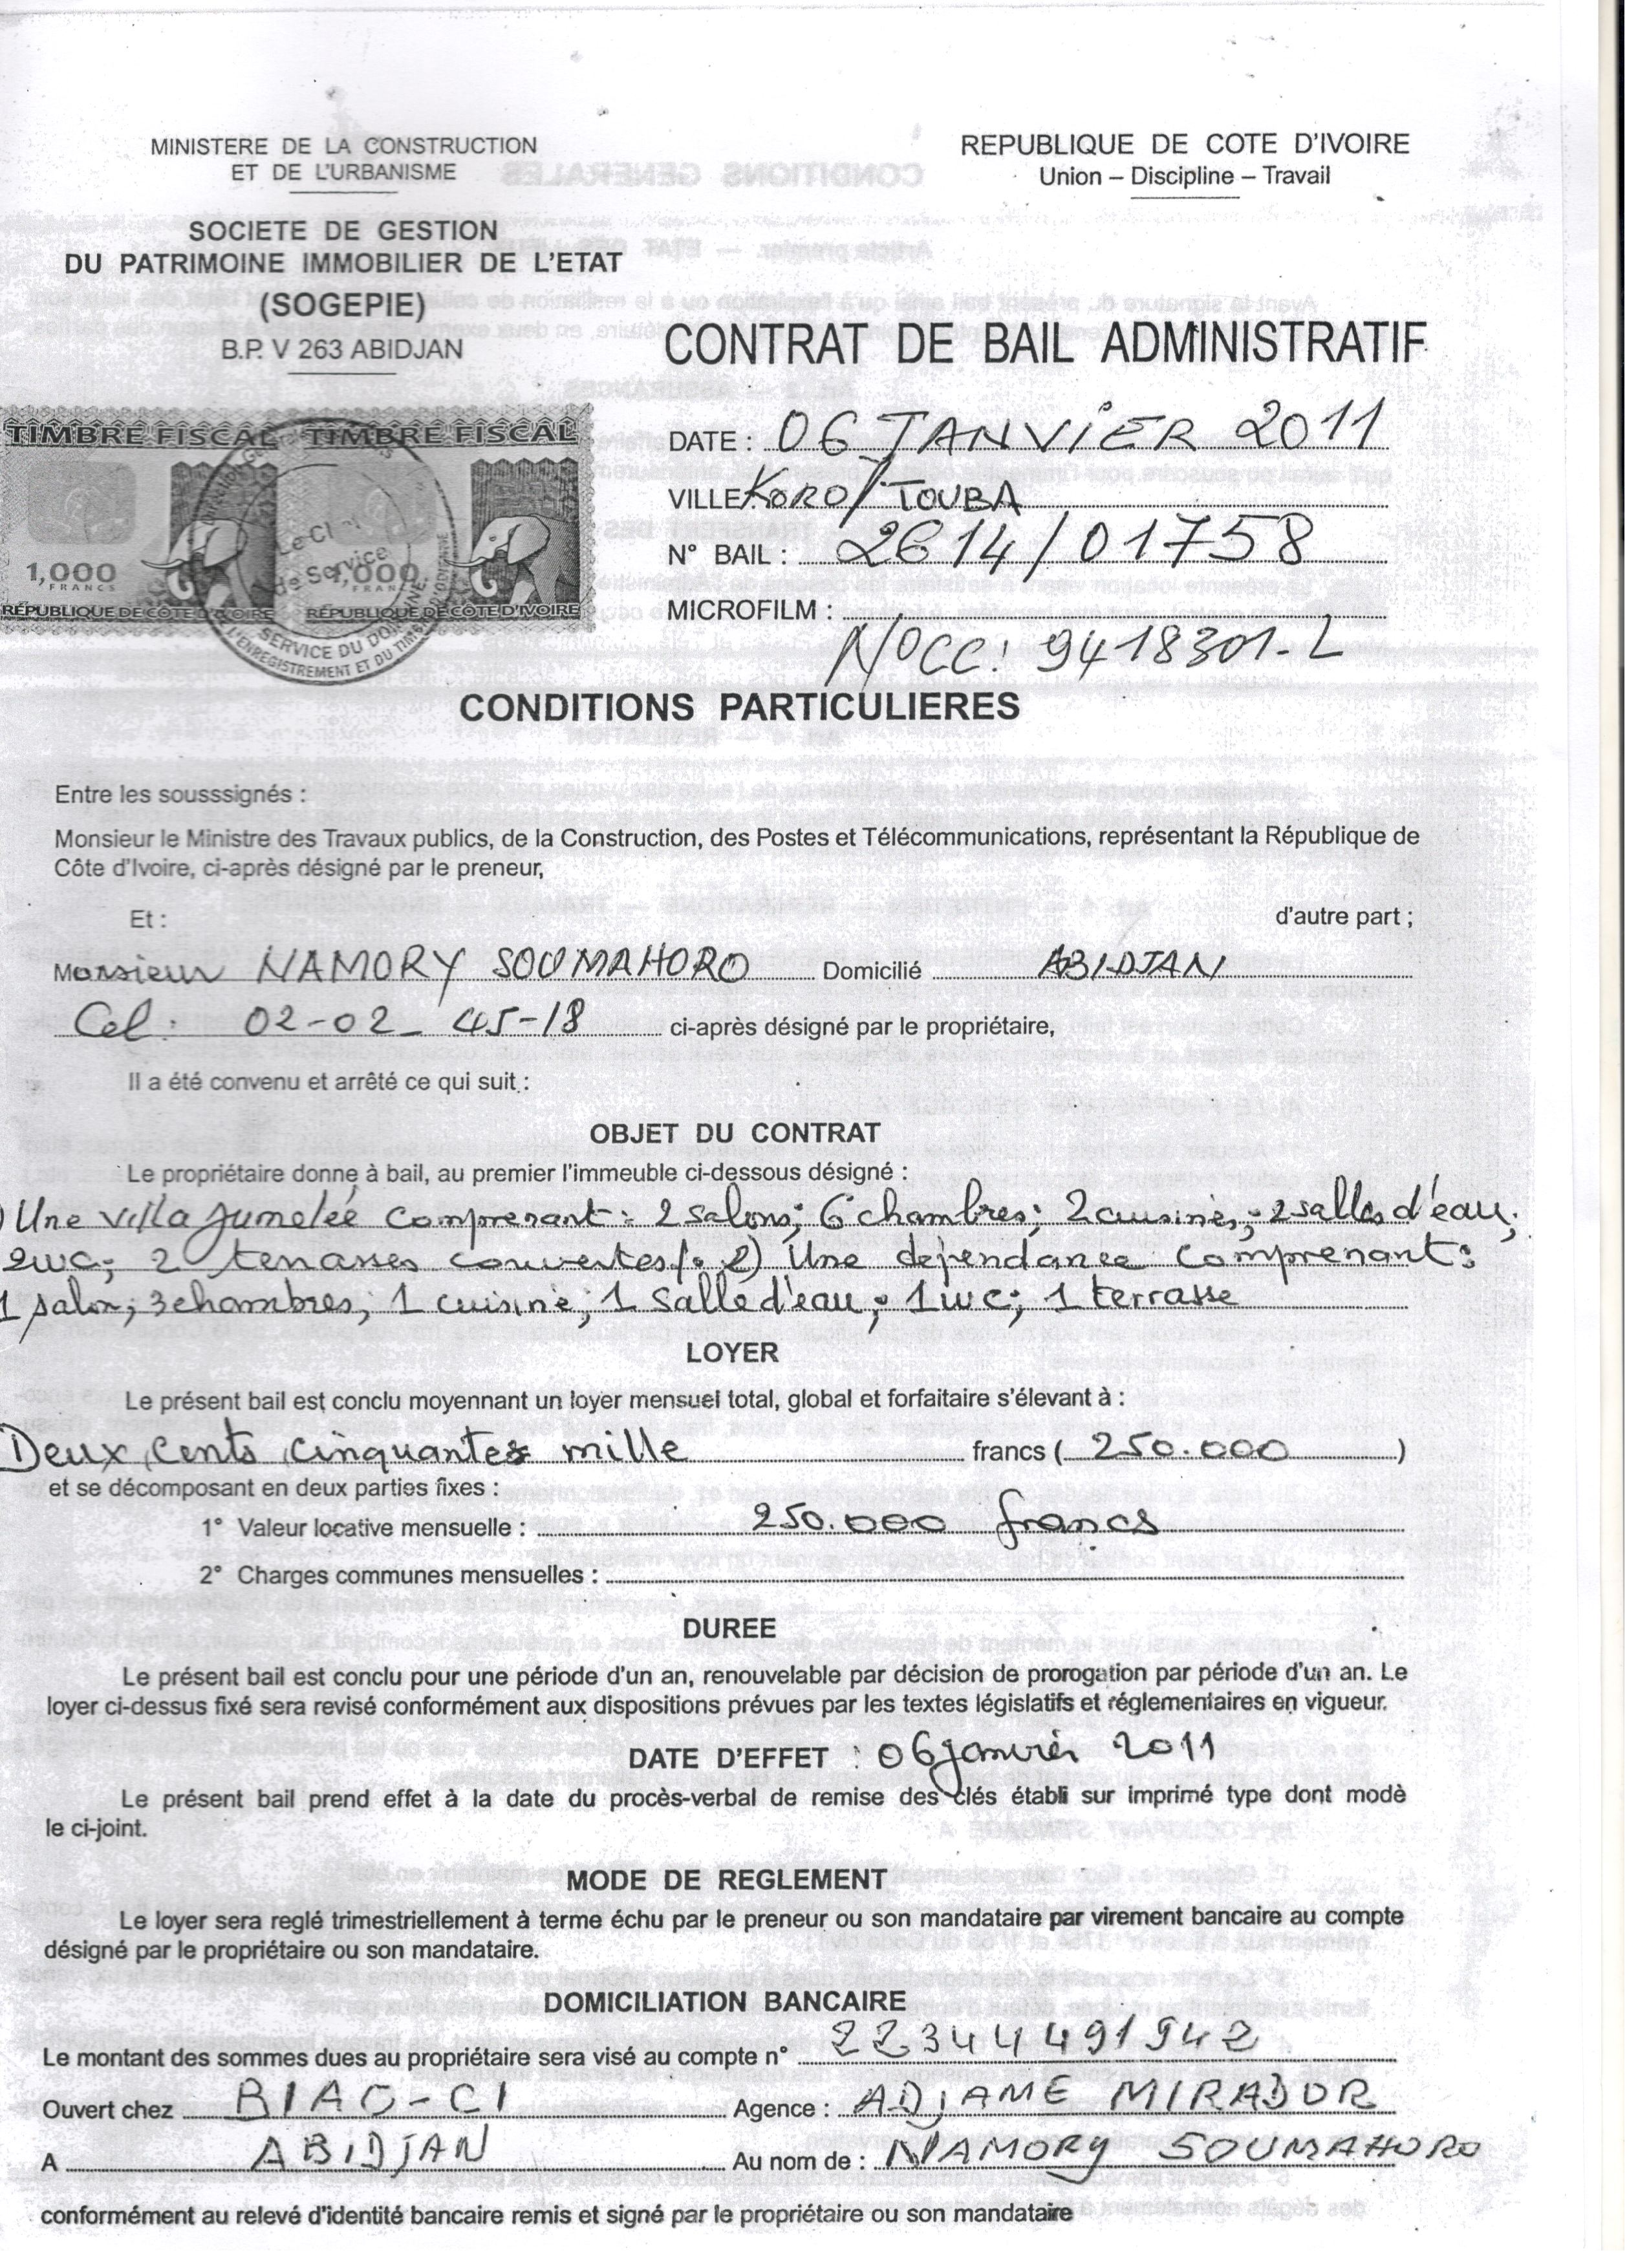 MINISTERE DE LA CONSTRUCTION
ET DE L'URBANISME
REPUBLIQUE DE COTE D'IVOIRE
Union – Discipline – Travail
SOCIETE DE GESTION
DU PATRIMOINE IMMOBILIER DE L'ETAT
(SOGEPIE)
B.P. V 263 ABIDJAN
CONTRAT DE BAIL ADMINISTRATIF
TIMBRE FISCAL TIMBRE FISCAL
1,000 FRANCS 1,000 FRANCS
REPUBLIQUE DE CÔTE D'IVOIRE REPUBLIQUE DE CÔTE D'IVOIRE
de Service
SERVICE DU
L'ENREGISTREMENT ET DU TIMBRE
DATE : 06 JANVIER 2011
VILLE KORO/TOUBA
N° BAIL : 2614/01758
MICROFILM :
N°CC: 9418301-L
CONDITIONS PARTICULIERES
Entre les sousssignés :
Monsieur le Ministre des Travaux publics, de la Construction, des Postes et Télécommunications, représentant la République de
Côte d'Ivoire, ci-après désigné par le preneur,
Et : d'autre part ;
Monsieur NAMORY SOUMAHORO Domicilié ABIDJAN
Cel: 02-02-45-18 ci-après désigné par le propriétaire,
Il a été convenu et arrêté ce qui suit :
OBJET DU CONTRAT
Le propriétaire donne à bail, au premier l'immeuble ci-dessous désigné :
) Une villa jumelée comprenant: 2 salons; 6 chambres; 2 cuisines; 2 salles d'eau;
2wc; 2 terrasses couvertes/. 2) Une dependance comprenant:
1 salon; 3 chambres; 1 cuisine; 1 salle d'eau; 1 wc; 1 terrasse
LOYER
Le présent bail est conclu moyennant un loyer mensuel total, global et forfaitaire s'élevant à :
Deux cents cinquantes mille francs ( 250.000 )
et se décomposant en deux parties fixes :
1° Valeur locative mensuelle : 250.000 francs
2° Charges communes mensuelles :
DUREE
Le présent bail est conclu pour une période d'un an, renouvelable par décision de prorogation par période d'un an. Le
loyer ci-dessus fixé sera revisé conformément aux dispositions prévues par les textes législatifs et réglementaires en vigueur.
DATE D'EFFET : 06 janvier 2011
Le présent bail prend effet à la date du procès-verbal de remise des clés établi sur imprimé type dont modè
le ci-joint.
MODE DE REGLEMENT
Le loyer sera reglé trimestriellement à terme échu par le preneur ou son mandataire par virement bancaire au compte
désigné par le propriétaire ou son mandataire.
DOMICILIATION BANCAIRE
Le montant des sommes dues au propriétaire sera visé au compte n° 22344491942
Ouvert chez BIAO-CI Agence : ADJAME MIRADOR
A ABIDJAN Au nom de : NAMORY SOUMAHORO
conformément au relevé d'identité bancaire remis et signé par le propriétaire ou son mandataire